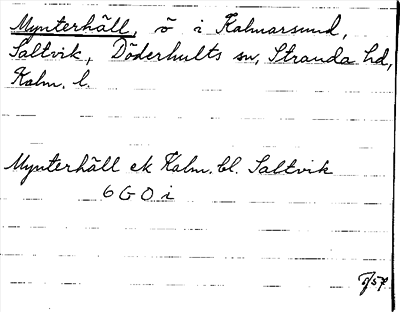 Mynterhäll, ö i Kalmarsund,
Saltvik, Döderhults sn, Stranda hd,
Kalm. l.
Mynterhäll ek Kalm. bl. Saltvik
6 G O i